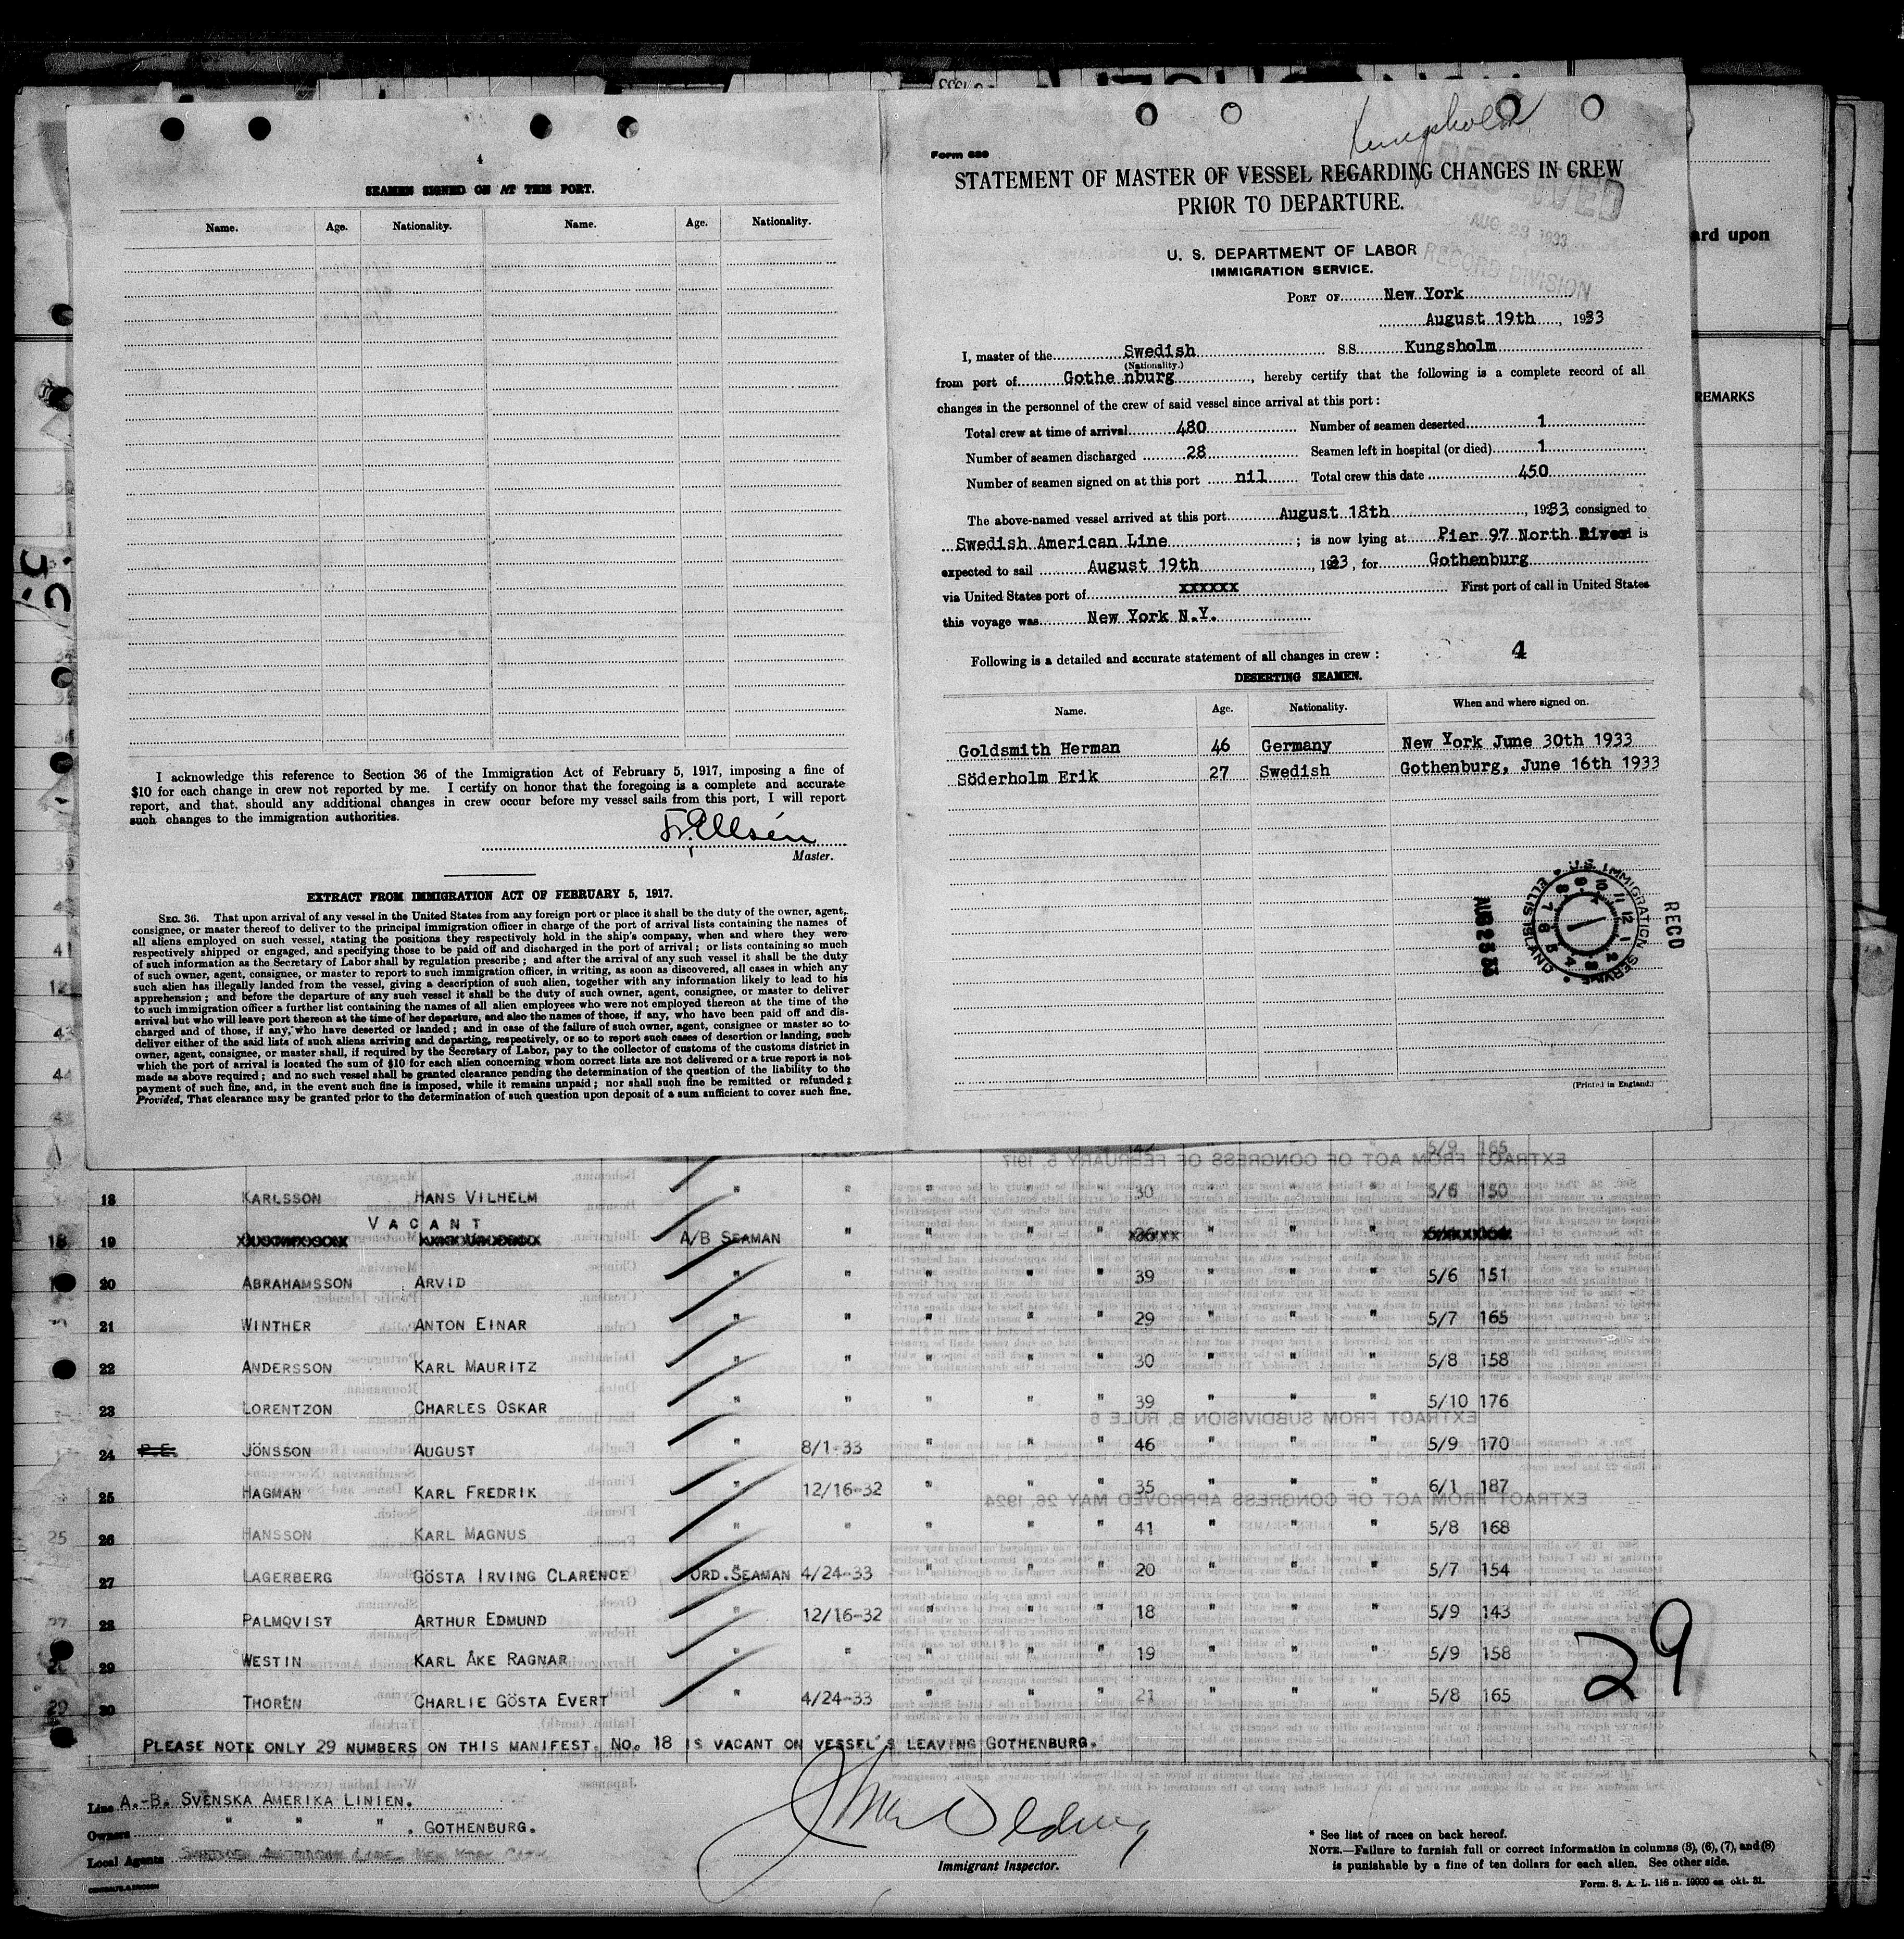 4
SEAMEN SIGNED ON AT THIS PORT.
Name. Age. Nationality. Name. Age. Nationality.
I acknowledge this reference to Section 36 of the Immigration Act of February 5, 1917, imposing a fine of
$10 for each change in crew not reported by me. I certify on honor that the foregoing is a complete and accurate
report, and that, should any additional changes in crew occur before my vessel sails from this port, I will report
such changes to the immigration authorities.
Master.
EXTRACT FROM IMMIGRATION ACT OF FEBRUARY 5, 1917.
SEC. 36. That upon arrival of any vessel in the United States from any foreign port or place it shall be the duty of the owner, agent,
consignee, or master thereof to deliver to the principal immigration officer in charge of the port of arrival lists containing the names of
all aliens employed on such vessel, stating the positions they respectively hold in the ship's company, when and where they were
respectively shipped or engaged, and specifying those to be paid off and discharged in the port of arrival; or lists containing so much
of such information as the Secretary of Labor shall by regulation prescribe; and after the arrival of any such vessel it shall be the duty
of such owner, agent, consignee, or master to report to such immigration officer, in writing, as soon as discovered, all cases in which any
such alien has illegally landed from the vessel, giving a description of such alien, together with any information likely to lead to his
apprehension; and before the departure of any such vessel it shall be the duty of such owner, agent, consignee, or master to deliver
to such immigration officer a further list containing the names of all alien employees who were not employed thereon at the time of the
arrival but who will leave port thereon at the time of her departure, and also the names of those, if any, who have been paid off and dis-
charged and of those, if any, who have deserted or landed; and in case of the failure of such owner, agent, consignee or master so to
deliver either of the said lists of such aliens arriving and departing, respectively, or so to report such cases of desertion or landing, such
owner, agent, consignee, or master shall, if required by the Secretary of Labor, pay to the collector of customs of the customs district in
which the port of arrival is located the sum of $10 for each alien concerning whom correct lists are not delivered or a true report is not
made as above required; and no such vessel shall be granted clearance pending the determination of the question of the liability to the
payment of such fine, and, in the event such fine is imposed, while it remains unpaid; nor shall such fine be remitted or refunded:
Provided, That clearance may be granted prior to the determination of such question upon deposit of a sum sufficient to cover such fine.
Kungsholm
Form 689
STATEMENT OF MASTER OF VESSEL REGARDING CHANGES IN CREW
PRIOR TO DEPARTURE.
RECEIVED
AUG. 23 1933
RECORD DIVISION
U. S. DEPARTMENT OF LABOR
IMMIGRATION SERVICE.
PORT OF New York
August 19th, 1933
I, master of the Swedish S.S. Kungsholm
(Nationality.)
from port of Gothe nburg, hereby certify that the following is a complete record of all
changes in the personnel of the crew of said vessel since arrival at this port:
Total crew at time of arrival 480 Number of seamen deserted 1
Number of seamen discharged 28 Seamen left in hospital (or died) 1
Number of seamen signed on at this port nil Total crew this date 450
The above-named vessel arrived at this port August 18th, 1933 consigned to
Swedish American Line; is now lying at Pier 97 North River is
expected to sail August 19th, 1933, for Gothenburg
via United States port of xxxxxx First port of call in United States
this voyage was New York N.Y.
Following is a detailed and accurate statement of all changes in crew: 4
DESERTING SEAMEN.
Name. Age. Nationality. When and where signed on.
Goldsmith Herman 46 Germany New York June 30th 1933
Söderholm Erik 27 Swedish Gothenburg, June 16th 1933
U.S. IMMIGRATION SERVICE ELLIS ISLAND
AUG 23 33
RECD
(Printed in England.)
ard upon
REMARKS
41
12
43
44
5/9 165
18 KARLSSON HANS VILHELM " " " " 30 " " " 5/6 150
VACANT
19 A/B SEAMAN " " " " " "
20 ABRAHAMSSON ARVID " " " " " 39 " " " 5/6 151
21 WINTHER ANTON EINAR " " " " " 29 " " " 5/7 165
22 ANDERSSON KARL MAURITZ " " " " " 30 " " " 5/8 158
23 LORENTZON CHARLES OSKAR " " " " " 39 " " " 5/10 176
24 P.E. JÖNSSON AUGUST " 8/1-33 " " " 46 " " " 5/9 170
25 HAGMAN KARL FREDRIK " 12/16-32 " " " 35 " " " 6/1 187
26 HANSSON KARL MAGNUS " " " " " 41 " " " 5/8 168
27 LAGERBERG GÖSTA IRVING CLARENCE ORD.SEAMAN 4/24-33 " " " 20 " " " 5/7 154
28 PALMQVIST ARTHUR EDMUND " 12/16-32 " " " 18 " " " 5/9 143
29 WESTIN KARL ÅKE RAGNAR " " " " " 19 " " " 5/9 158
30 THORÉN CHARLIE GÖSTA EVERT " 4/24-33 " " " 21 " " " 5/8 165
29
PLEASE NOTE ONLY 29 NUMBERS ON THIS MANIFEST. NO. 18 IS VACANT ON VESSEL'S LEAVING GOTHENBURG.
Line A.-B. SVENSKA AMERIKA LINIEN.
Owners " " ". GOTHENBURG.
Local Agents SWEDISH AMERICAN LINE NEW YORK CITY
Immigrant Inspector.
* See list of races on back hereof.
NOTE.—Failure to furnish full or correct information in columns (3), (6), (7), and (8)
is punishable by a fine of ten dollars for each alien. See other side.
Form. S. A. L. 116 n. 10000 ex okt. 31.